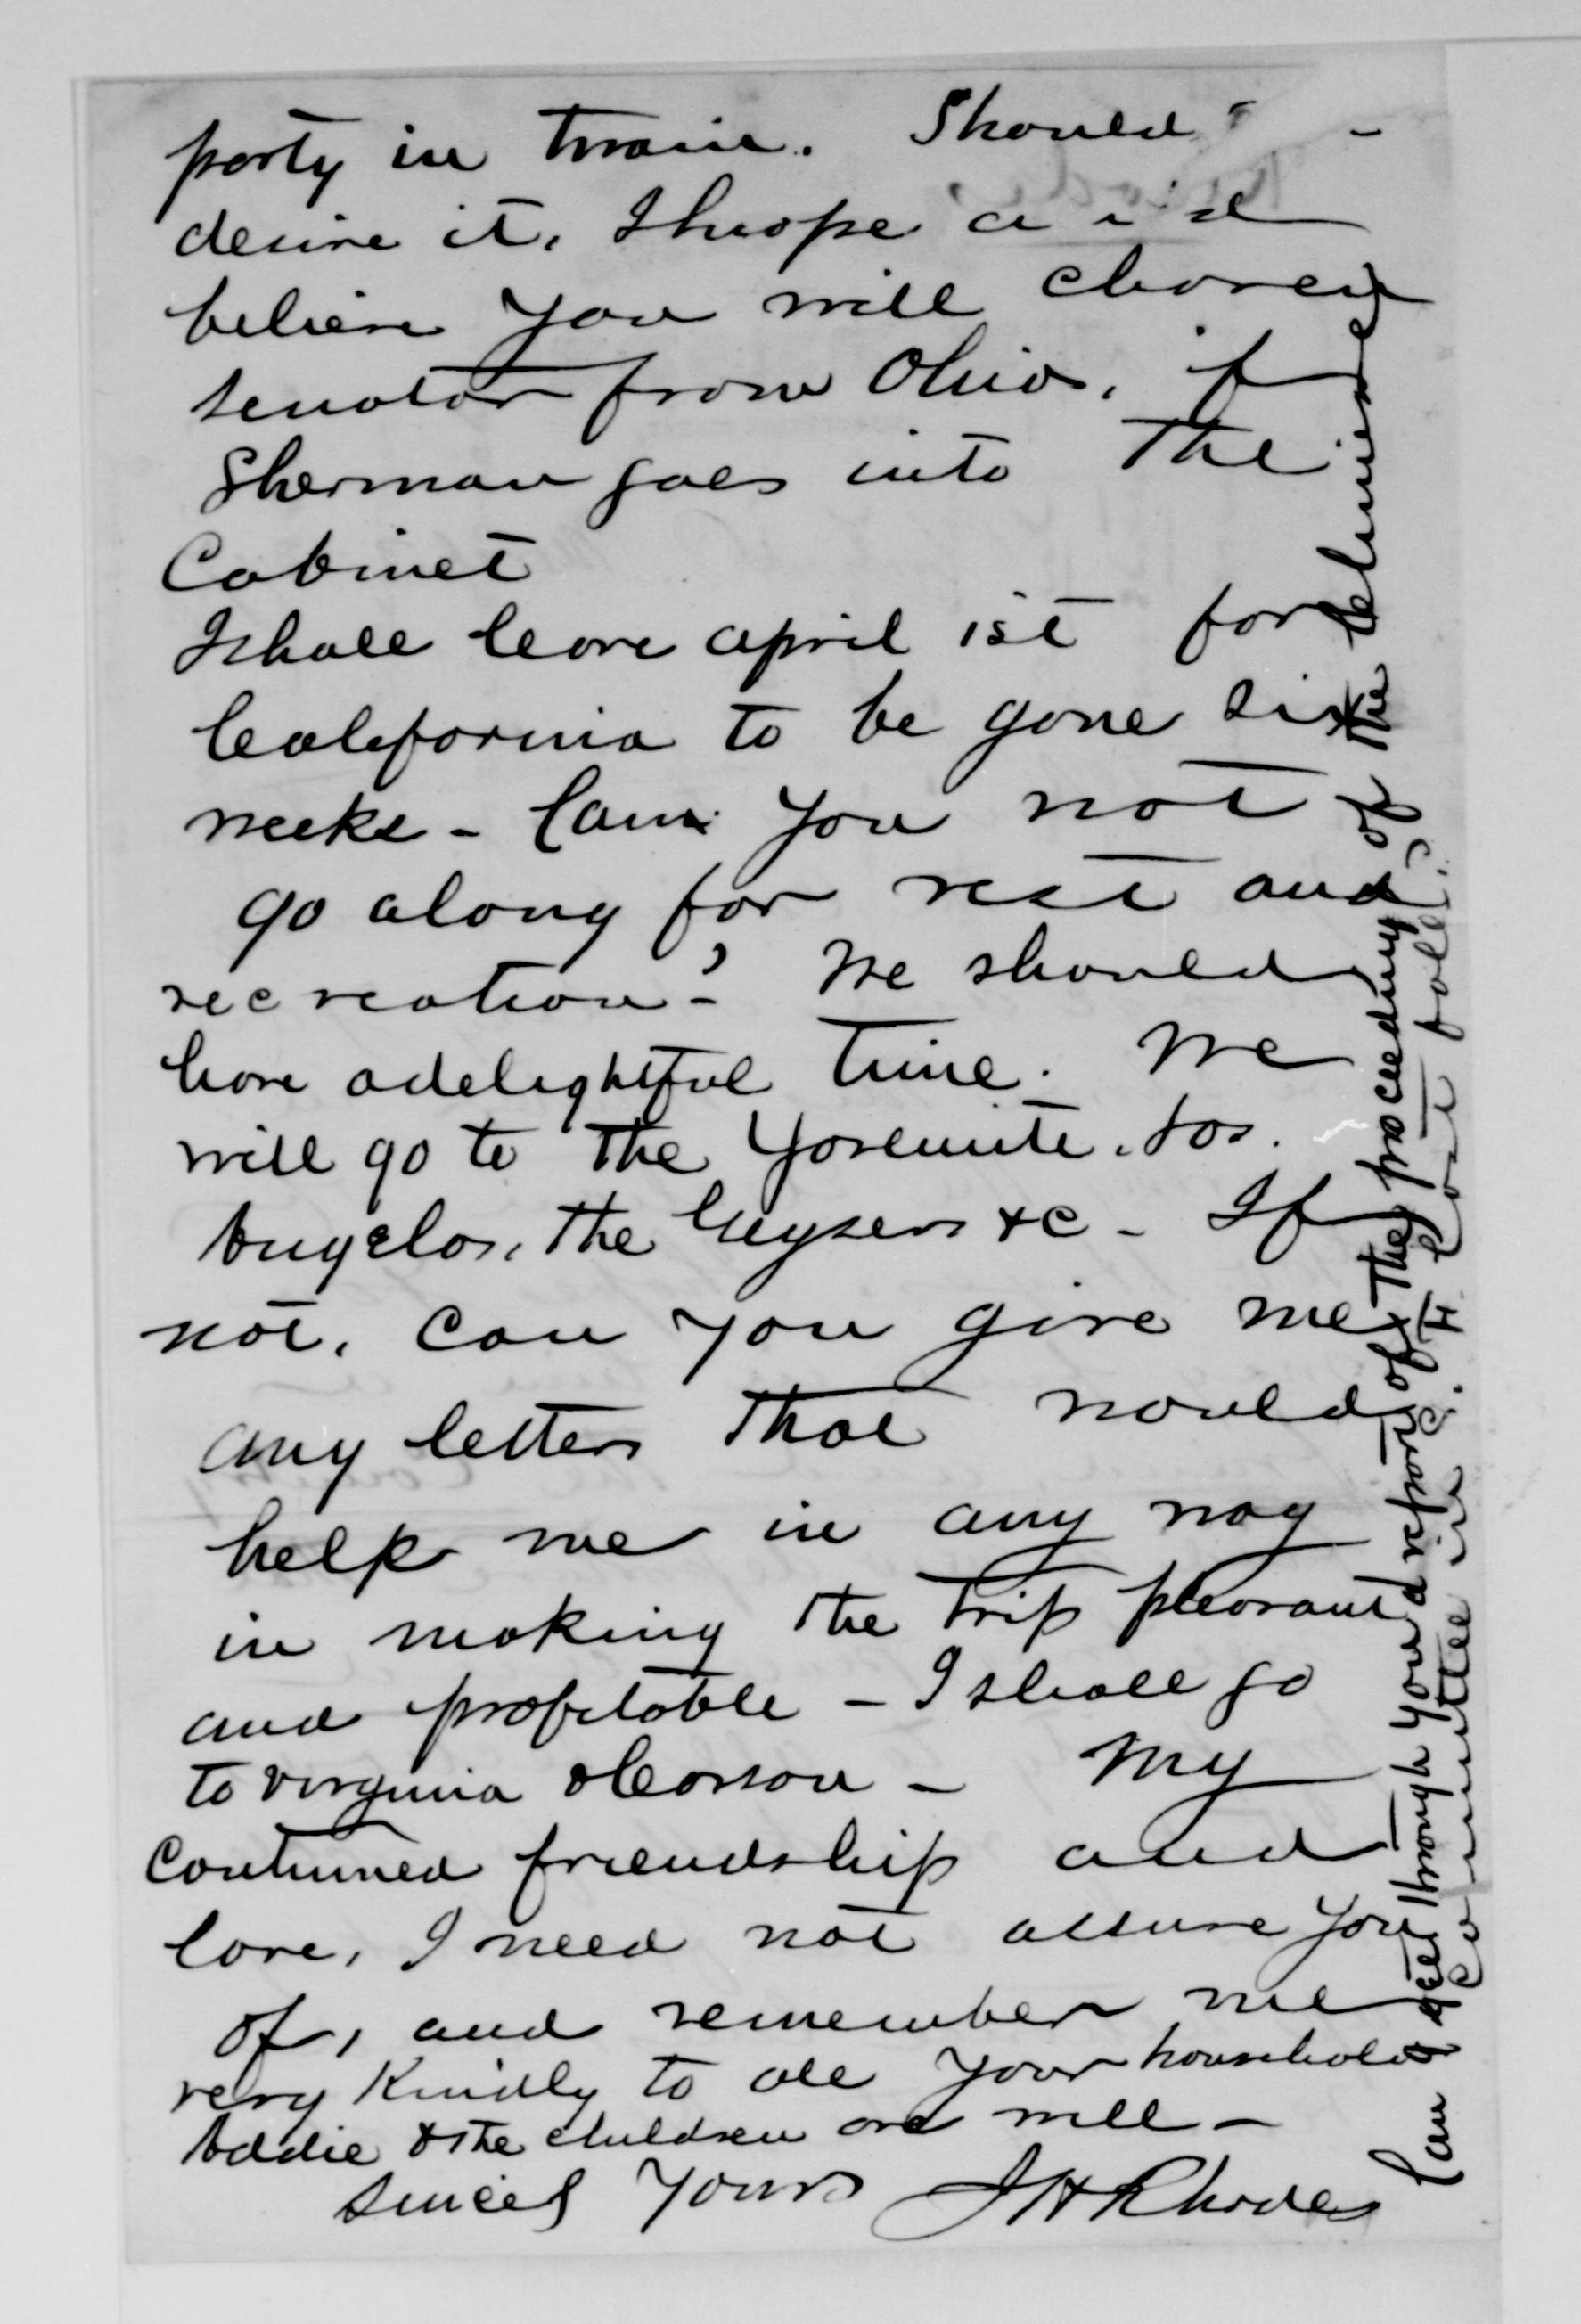 party in twain. Should
desire it, I hope and
believe you will chosen
senator from Ohio, if
Sherman goes into the
Cabinet
I shall leave April 1st for
California to be gone six
weeks - Can you not
go along for rest and
recreation? We should
have a delightful time. We
will go to the Yosemite, Los.
Angelos, the Geysers &c - If
not, can you give me
any letters that would
help me in any way
in making the trip pleasant
and profitable - I shall go
to Virginia & Carson - My
continued friendship and
love, I need not assure you
of, and remember me
very kindly to all your household
Addie & the children are well -
Sincely Yours J H Rhodes
Can I get through you a report of the proceedings of the
Committee in S. H. Coit